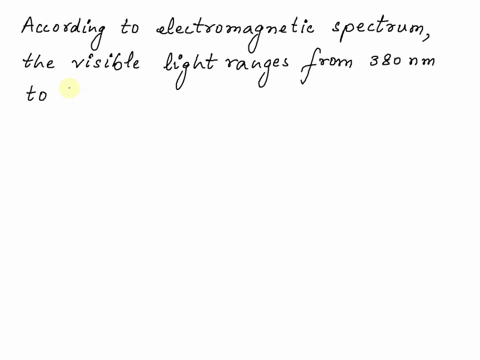 According to electromagnetic spectrum,
the visible light ranges from 380 nm
to